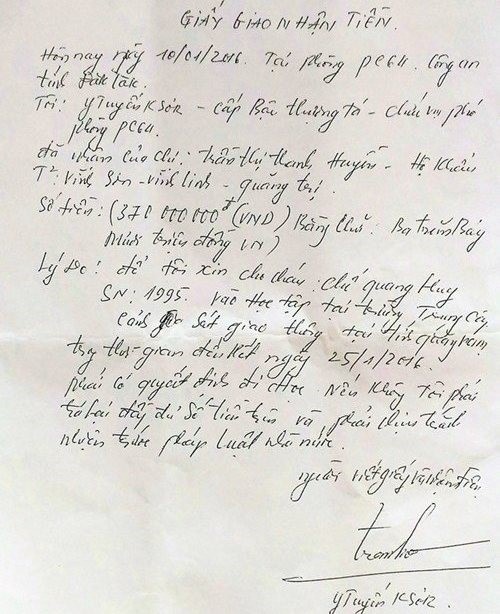 GIẤY GIAO NHẬN TIỀN.
Hôm nay ngày 10/01/2016. Tại phòng PC64. Công an
tỉnh Đắk Lắk.
Tôi: Y Tuyến KSƠR - cấp Bậc thượng tá - chức vụ phó
phòng PC64.
đã nhận của chị: Trần thị thanh Huyền - Hộ Khẩu
T²: Vĩnh Sơn - vĩnh linh - quảng trị.
Số tiền: (370 000 000đ (VND) Bằng chữ: Ba trăm Bảy
mươi triệu đồng VN)
Lý do: để tôi xin cho cháu: chế quang Huy
SN: 1995. vào học tập tại trường Trung Cấp
Cảnh sát giao thông tại
trong thời gian đến hết ngày 25/1/2016.
phải có quyết định đi học. Nếu không tôi phải
trả lại đầy đủ số tiền trên và phải chịu trách
nhiệm trước pháp luật nhà nước.
người viết giấy và nhận tiền
Y Tuyến KSƠR.